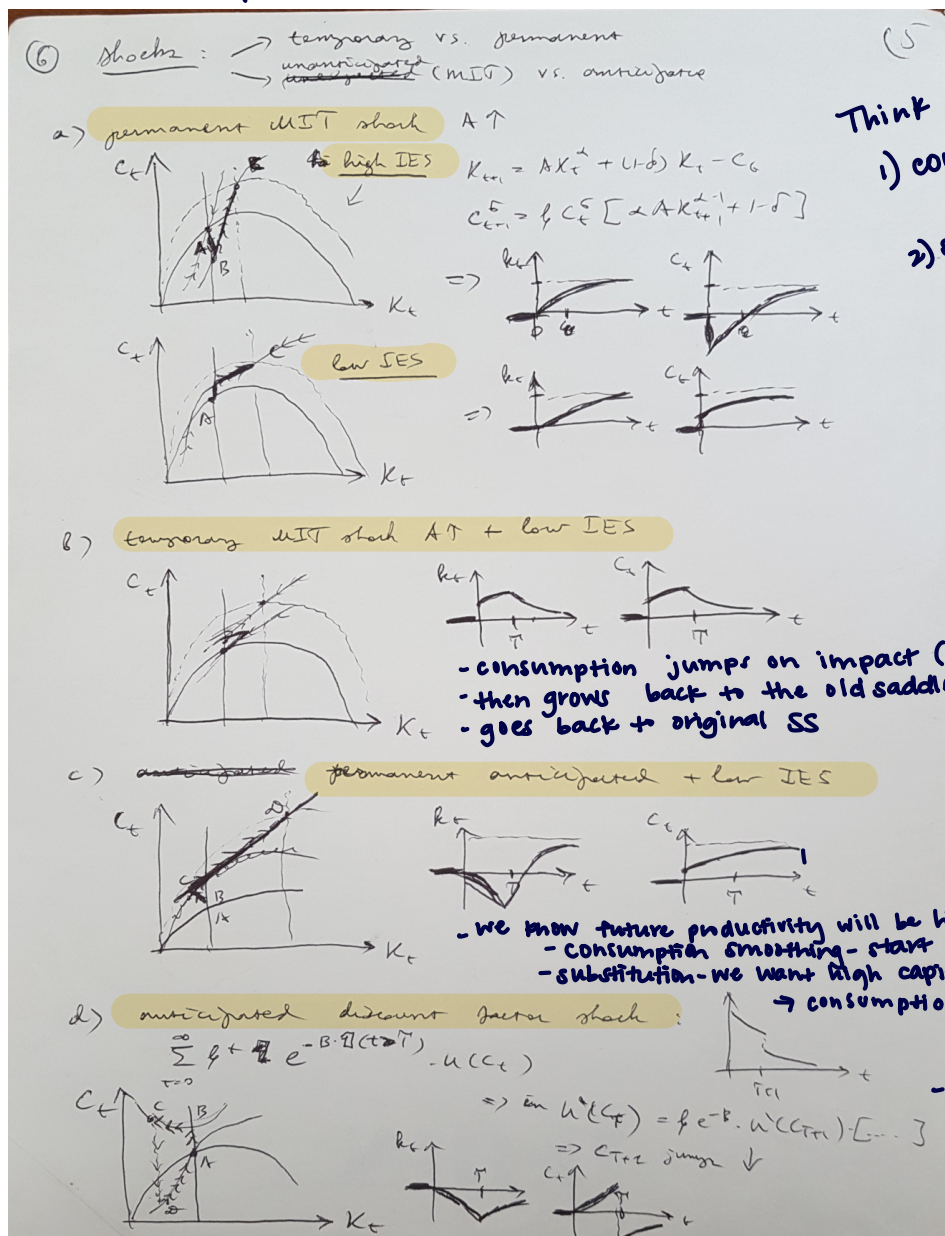 ⑥ shocks: → temporary vs. permanent
→ unanticipated (MIT) vs. anticipate
(5
a) permanent MIT shock A↑
Think
1) co
2)
high IES
K_{t+1} = AK_t^α + (1-δ) K_t - C_t
C_{t+1}^σ = β C_t^σ [αAK_{t+1}^{α-1} + 1-δ]
C_t
A
B
K_t
⇒
k_t
t
C_t
t
C_t
low IES
A
K_t
⇒
k_t
t
C_t
t
b) temporary MIT shock A↑ + low IES
C_t
K_t
k_t
T
t
C_t
T
t
- consumption jumps on impact (
- then grows back to the old saddl
- goes back to original SS
c) permanent anticipated + low IES
C_t
D
C
B
A
K_t
k_t
T
t
C_t
T
t
- we know future productivity will be h
- consumption smoothing - start
- substitution - we want high capi
→ consumptio
d) anticipated discount factor shock:
∑_{t=0}^∞ β^t e^{-B·1(t>T)} · u(C_t)
t
C_t
C
B
A
D
K_t
⇒ in u'(C_T) = β e^{-B} · u'(C_{T+1}) · [....]
⇒ C_{T+1} jumps ↓
k_t
T
C_t
T
t